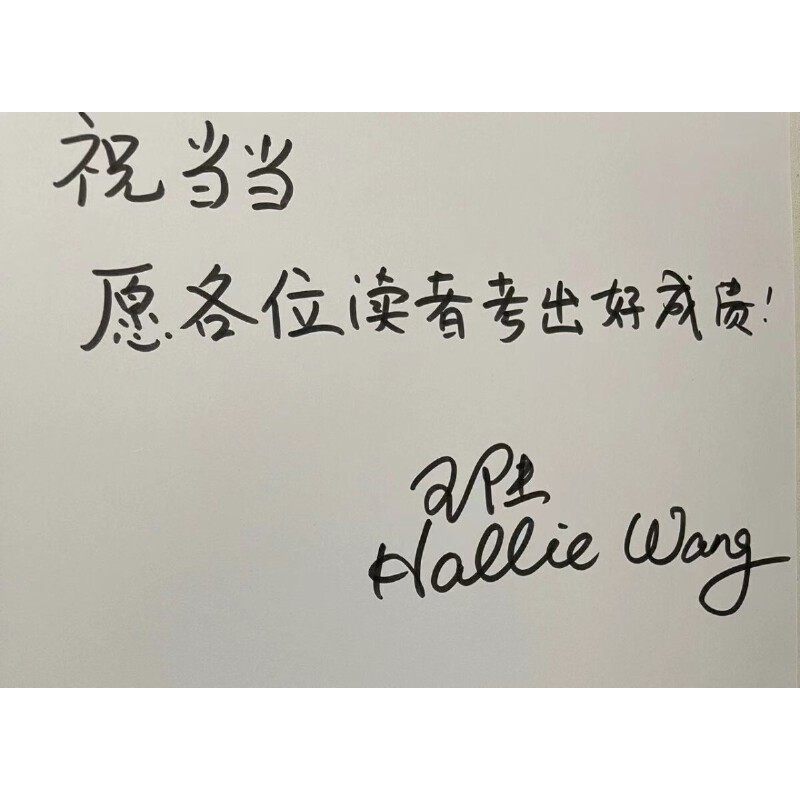 祝当当
愿各位读者考出好成绩!
王陆
Hallie Wang